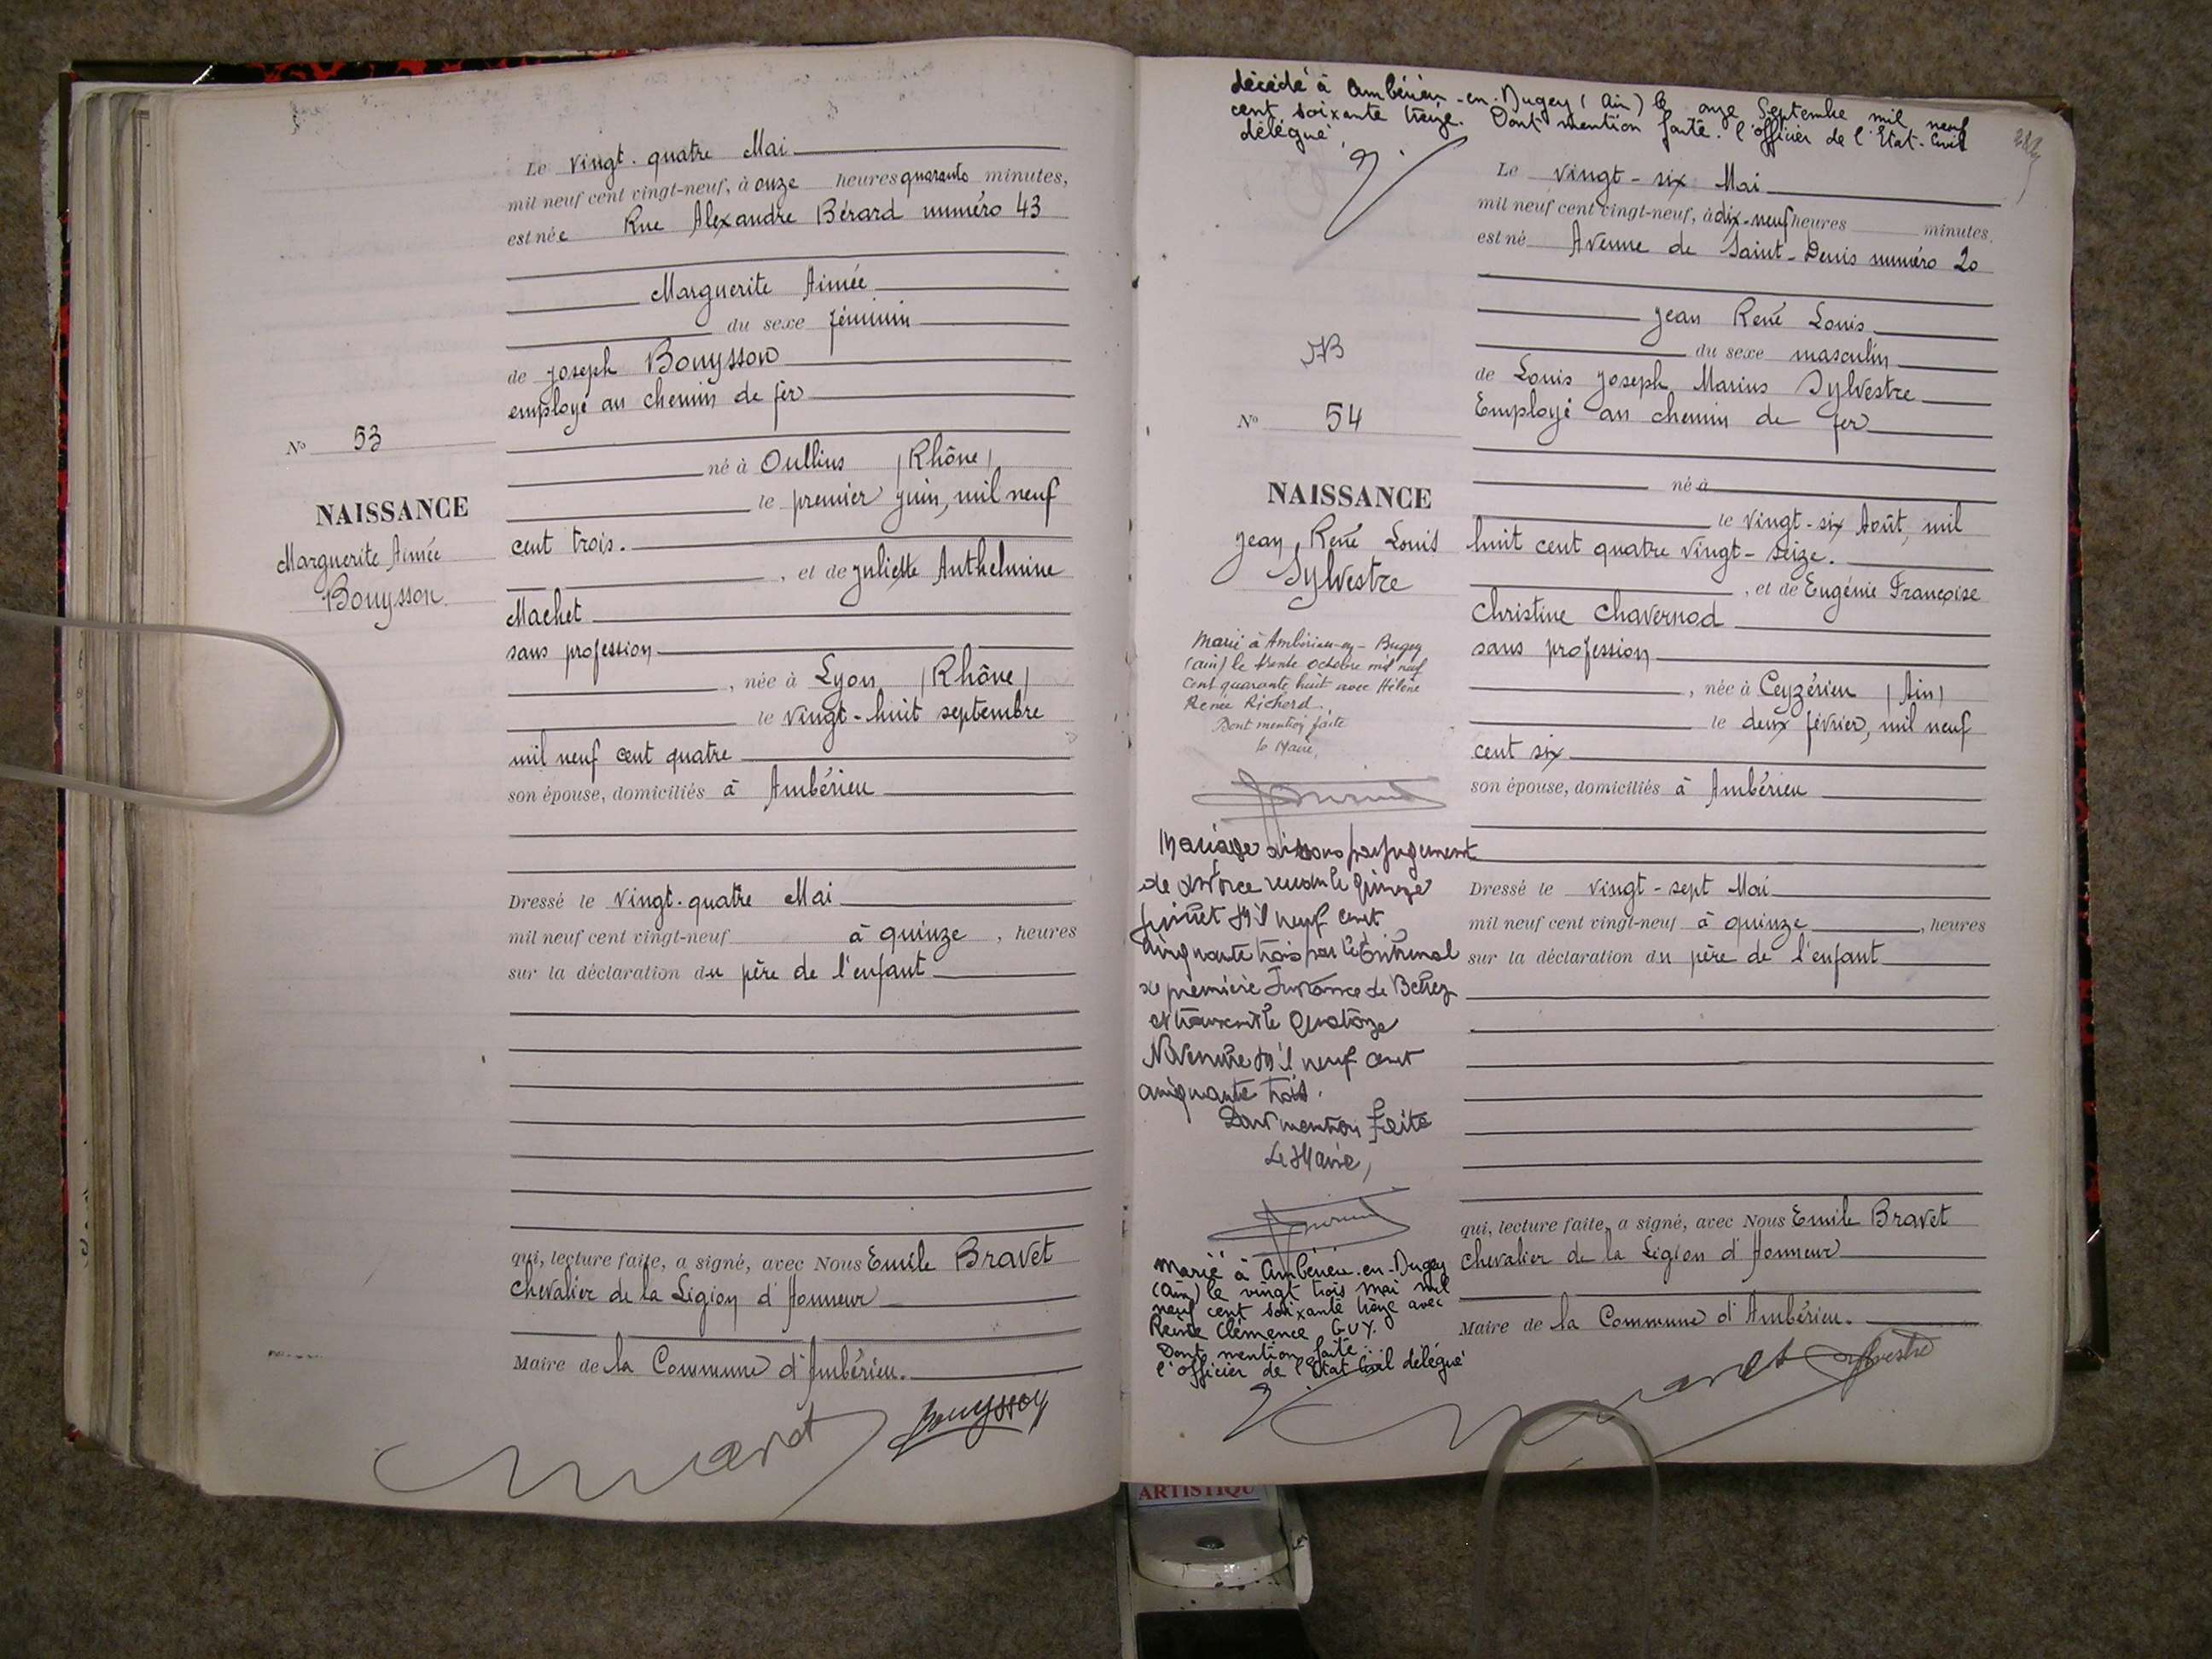 Le vingt-quatre Mai
mil neuf cent vingt-neuf, à onze heures quarante minutes,
est née Rue Alexandre Bérard numéro 43
Marguerite Aimée
du sexe féminin
de Joseph Bouysson
employé au chemin de fer
né à Oullins (Rhône)
le premier juin, mil neuf
cent trois.
, et de Juliette Anthelmine
Machet
sans profession
, née à Lyon (Rhône)
le vingt-huit septembre
mil neuf cent quatre
son épouse, domiciliés à Ambérieu
Dressé le vingt-quatre Mai
mil neuf cent vingt-neuf à quinze , heures
sur la déclaration du père de l'enfant
qui, lecture faite, a signé, avec Nous Emile Bravet
Chevalier de la Légion d'Honneur
Maire de la Commune d'Ambérieu.
Bouysson
No 53
NAISSANCE
Marguerite Aimée
Bouysson.
décédé à Ambérieu-en-Bugey (Ain) le onze Septembre mil neuf
cent soixante treize. Dont mention faite. l'officier de l'Etat-Civil
délégué,
Le vingt-six Mai
mil neuf cent vingt-neuf, à dix-neuf heures minutes.
est né Avenue de Saint-Denis numéro 20
Jean René Louis
du sexe masculin
de Louis Joseph Marius Sylvestre
Employé au chemin de fer
né à
le vingt-six Août, mil
huit cent quatre vingt-seize.
, et de Eugénie Françoise
Christine Chavernod
sans profession
, née à Ceyzérieu (Ain)
le deux février, mil neuf
cent six
son épouse, domiciliés à Ambérieu
Dressé le vingt-sept Mai
mil neuf cent vingt-neuf à quinze , heures
sur la déclaration du père de l'enfant
qui, lecture faite, a signé, avec Nous Emile Bravet
Chevalier de la Légion d'Honneur
Maire de la Commune d'Ambérieu.
Sylvestre
No 54
NAISSANCE
Jean René Louis
Sylvestre
Marié à Ambérieu-en-Bugey
(Ain) le trente Octobre mil neuf
cent quarante huit avec Hélène
Renée Richard.
Dont mention faite
le Maire,
Mariage dissous par jugement
de divorce rendu le quinze
juillet Mil neuf cent
cinquante trois par le Tribunal
de première Instance de Belley
et transcrit le Quatorze
Novembre Mil neuf cent
cinquante trois.
Dont mention faite
Le Maire,
Marié à Ambérieu-en-Bugey
(Ain) le vingt trois Mai mil
neuf cent soixante treize avec
Renée Clémence GUY.
Dont mention faite.
l'officier de l'Etat Civil délégué
ARTISTIQU